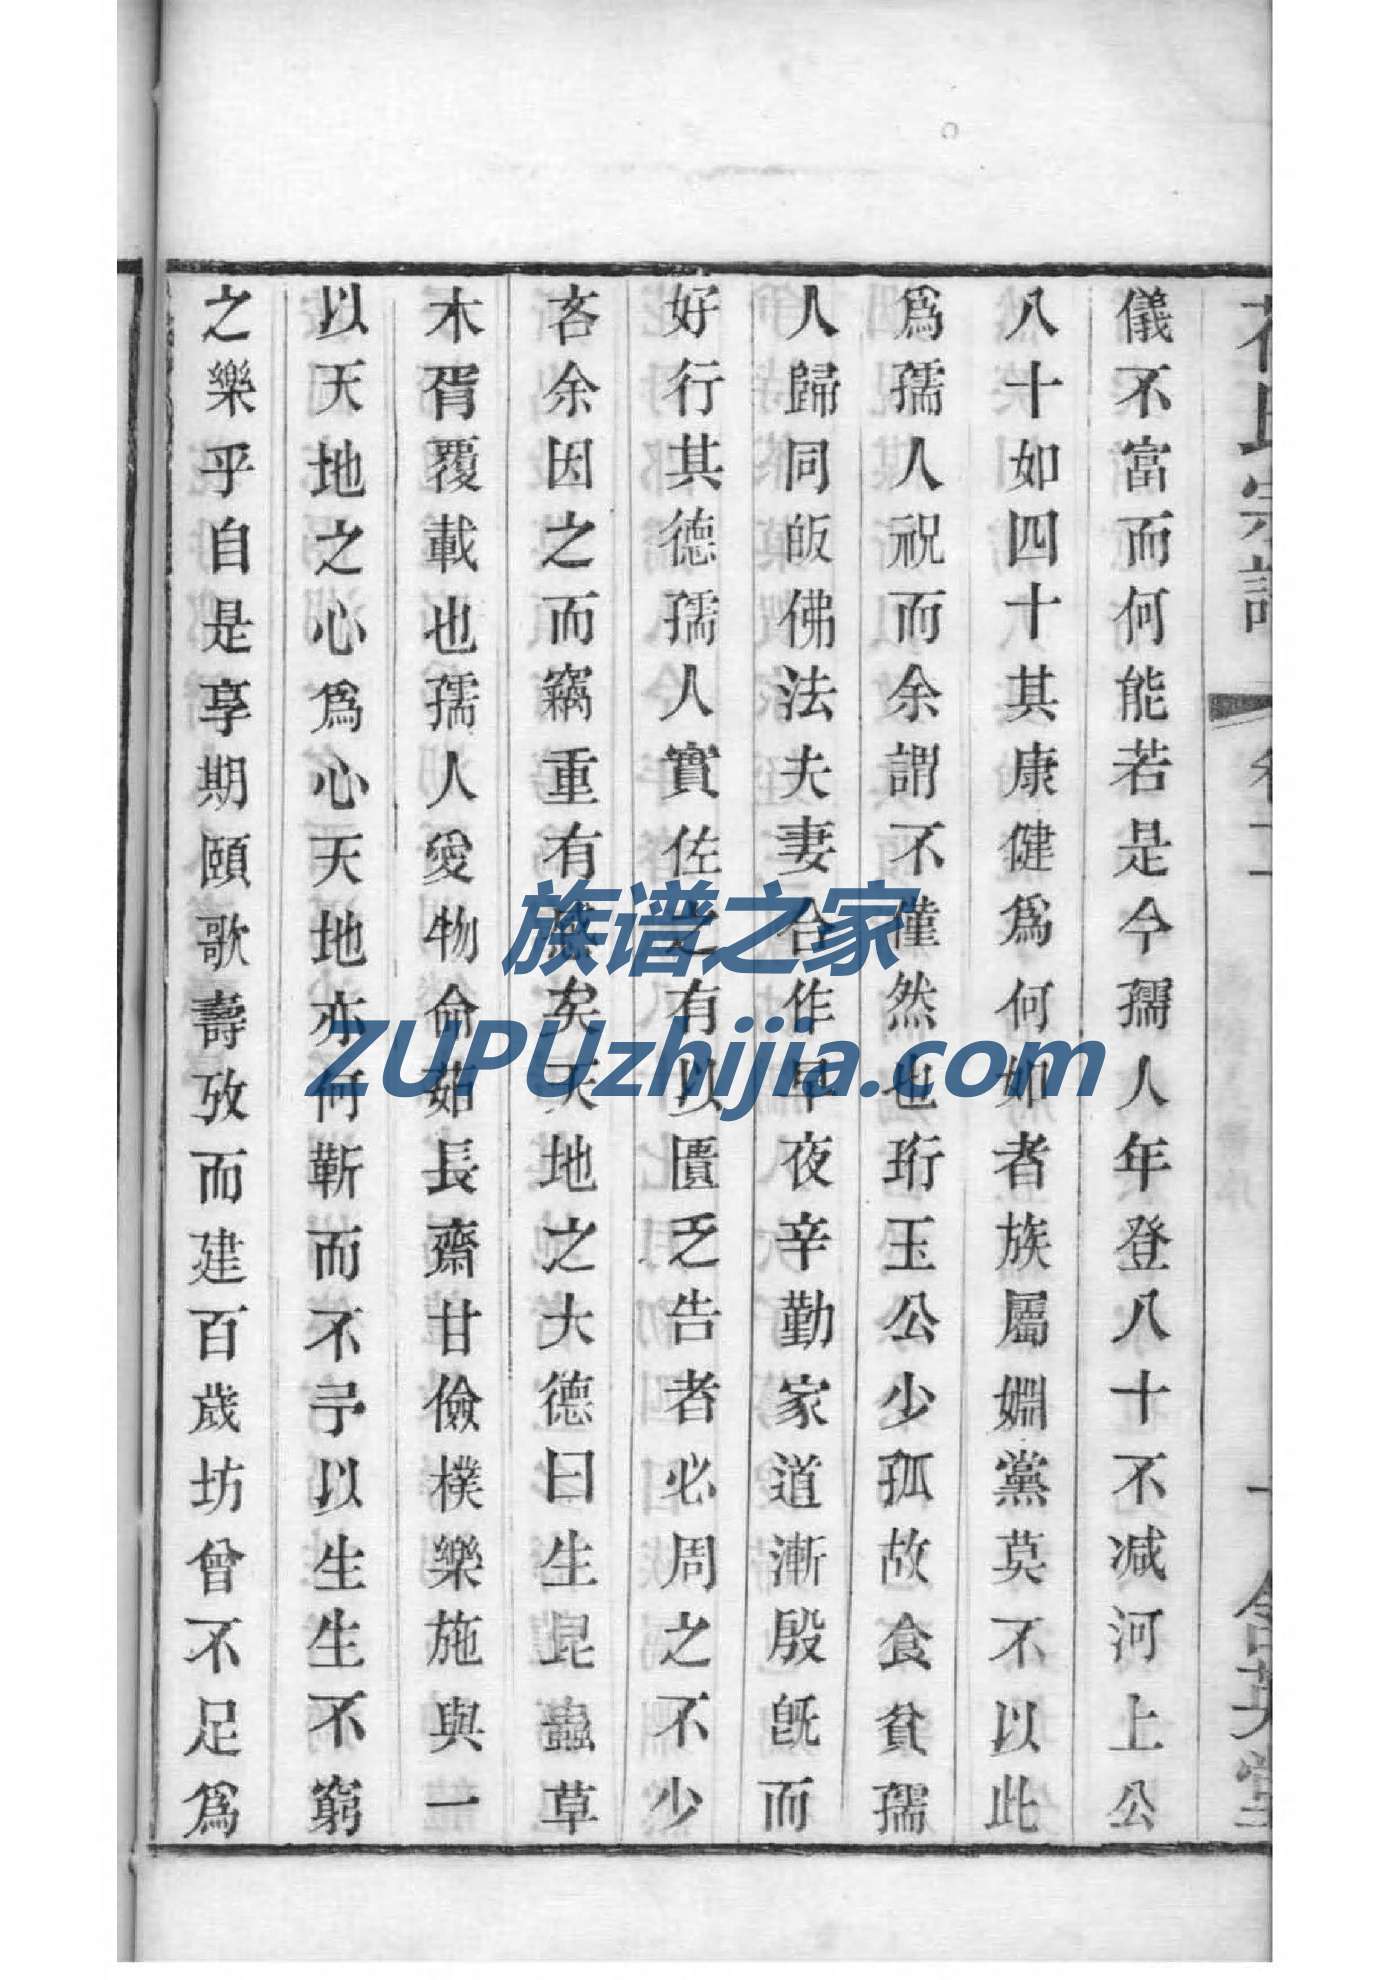 儀不富而何能若是今孺人年登八十不减河上公
八十如四十其康健爲何如者族屬婣黨莫不以此
爲孺人祝而余謂不僅然也珩玉公少孤故食貧孺
人歸同皈佛法夫妻合作早夜辛勤家道漸殷旣而
好行其德孺人實佐之有以匱乏告者必周之不少
吝余因之而竊重有感矣天地之大德曰生昆蟲草
木胥覆載也孺人愛物命茹長齋甘儉樸樂施與一
以天地之心爲心天地亦何靳而不予以生生不窮
之樂乎自是享期頤歌壽攷而建百歲坊曾不足爲
族谱之家
ZUPUzhijia.com